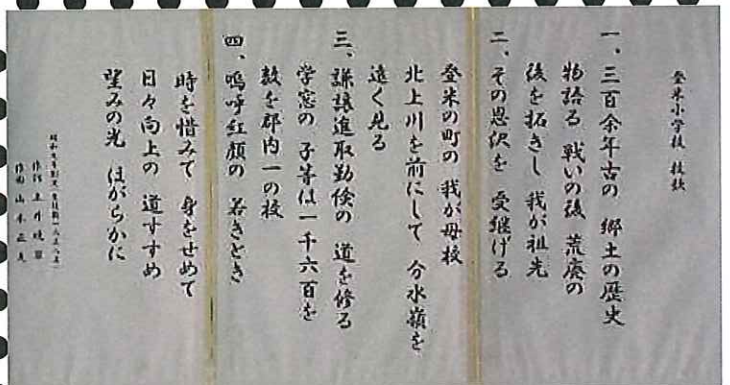 登米小学校 校歌
一、三百余年古の 郷土の歴史
物語る 戦いの後 荒廃の
後を拓きし 我が祖先
二、その恩沢を 受継げる
登米の町の 我が母校
北上川を前にして 分水嶺を
遠く見る
三、謙譲進取勤倹の 道を修る
学窓の 子等は一千六百を
数を郡内一の校
四、嗚呼紅顔の 若きとき
時を惜みて 身をせめて
日々向上の 道すすめ
望みの光 ほがらかに
昭和九年制定
作詞 土井晩翠
作曲 山本正夫